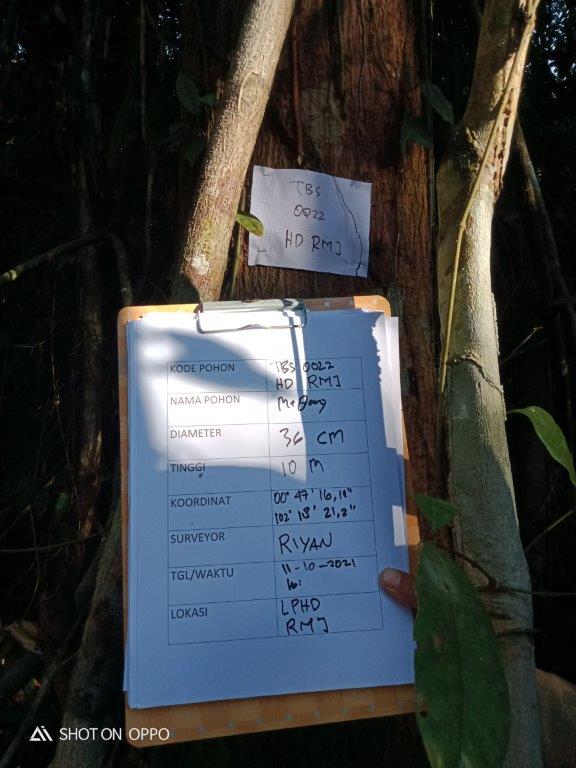 TBS
0022
HD RMJ
KODE POHON TBS 0022
HD RMJ
NAMA POHON
DIAMETER 36 CM
TINGGI 10 M
KOORDINAT 00° 47' 16,18"
102° 13' 21,2"
SURVEYOR RIYAN
TGL/WAKTU 11-10-2021
16:
LOKASI LPHD
RMJ
SHOT ON OPPO